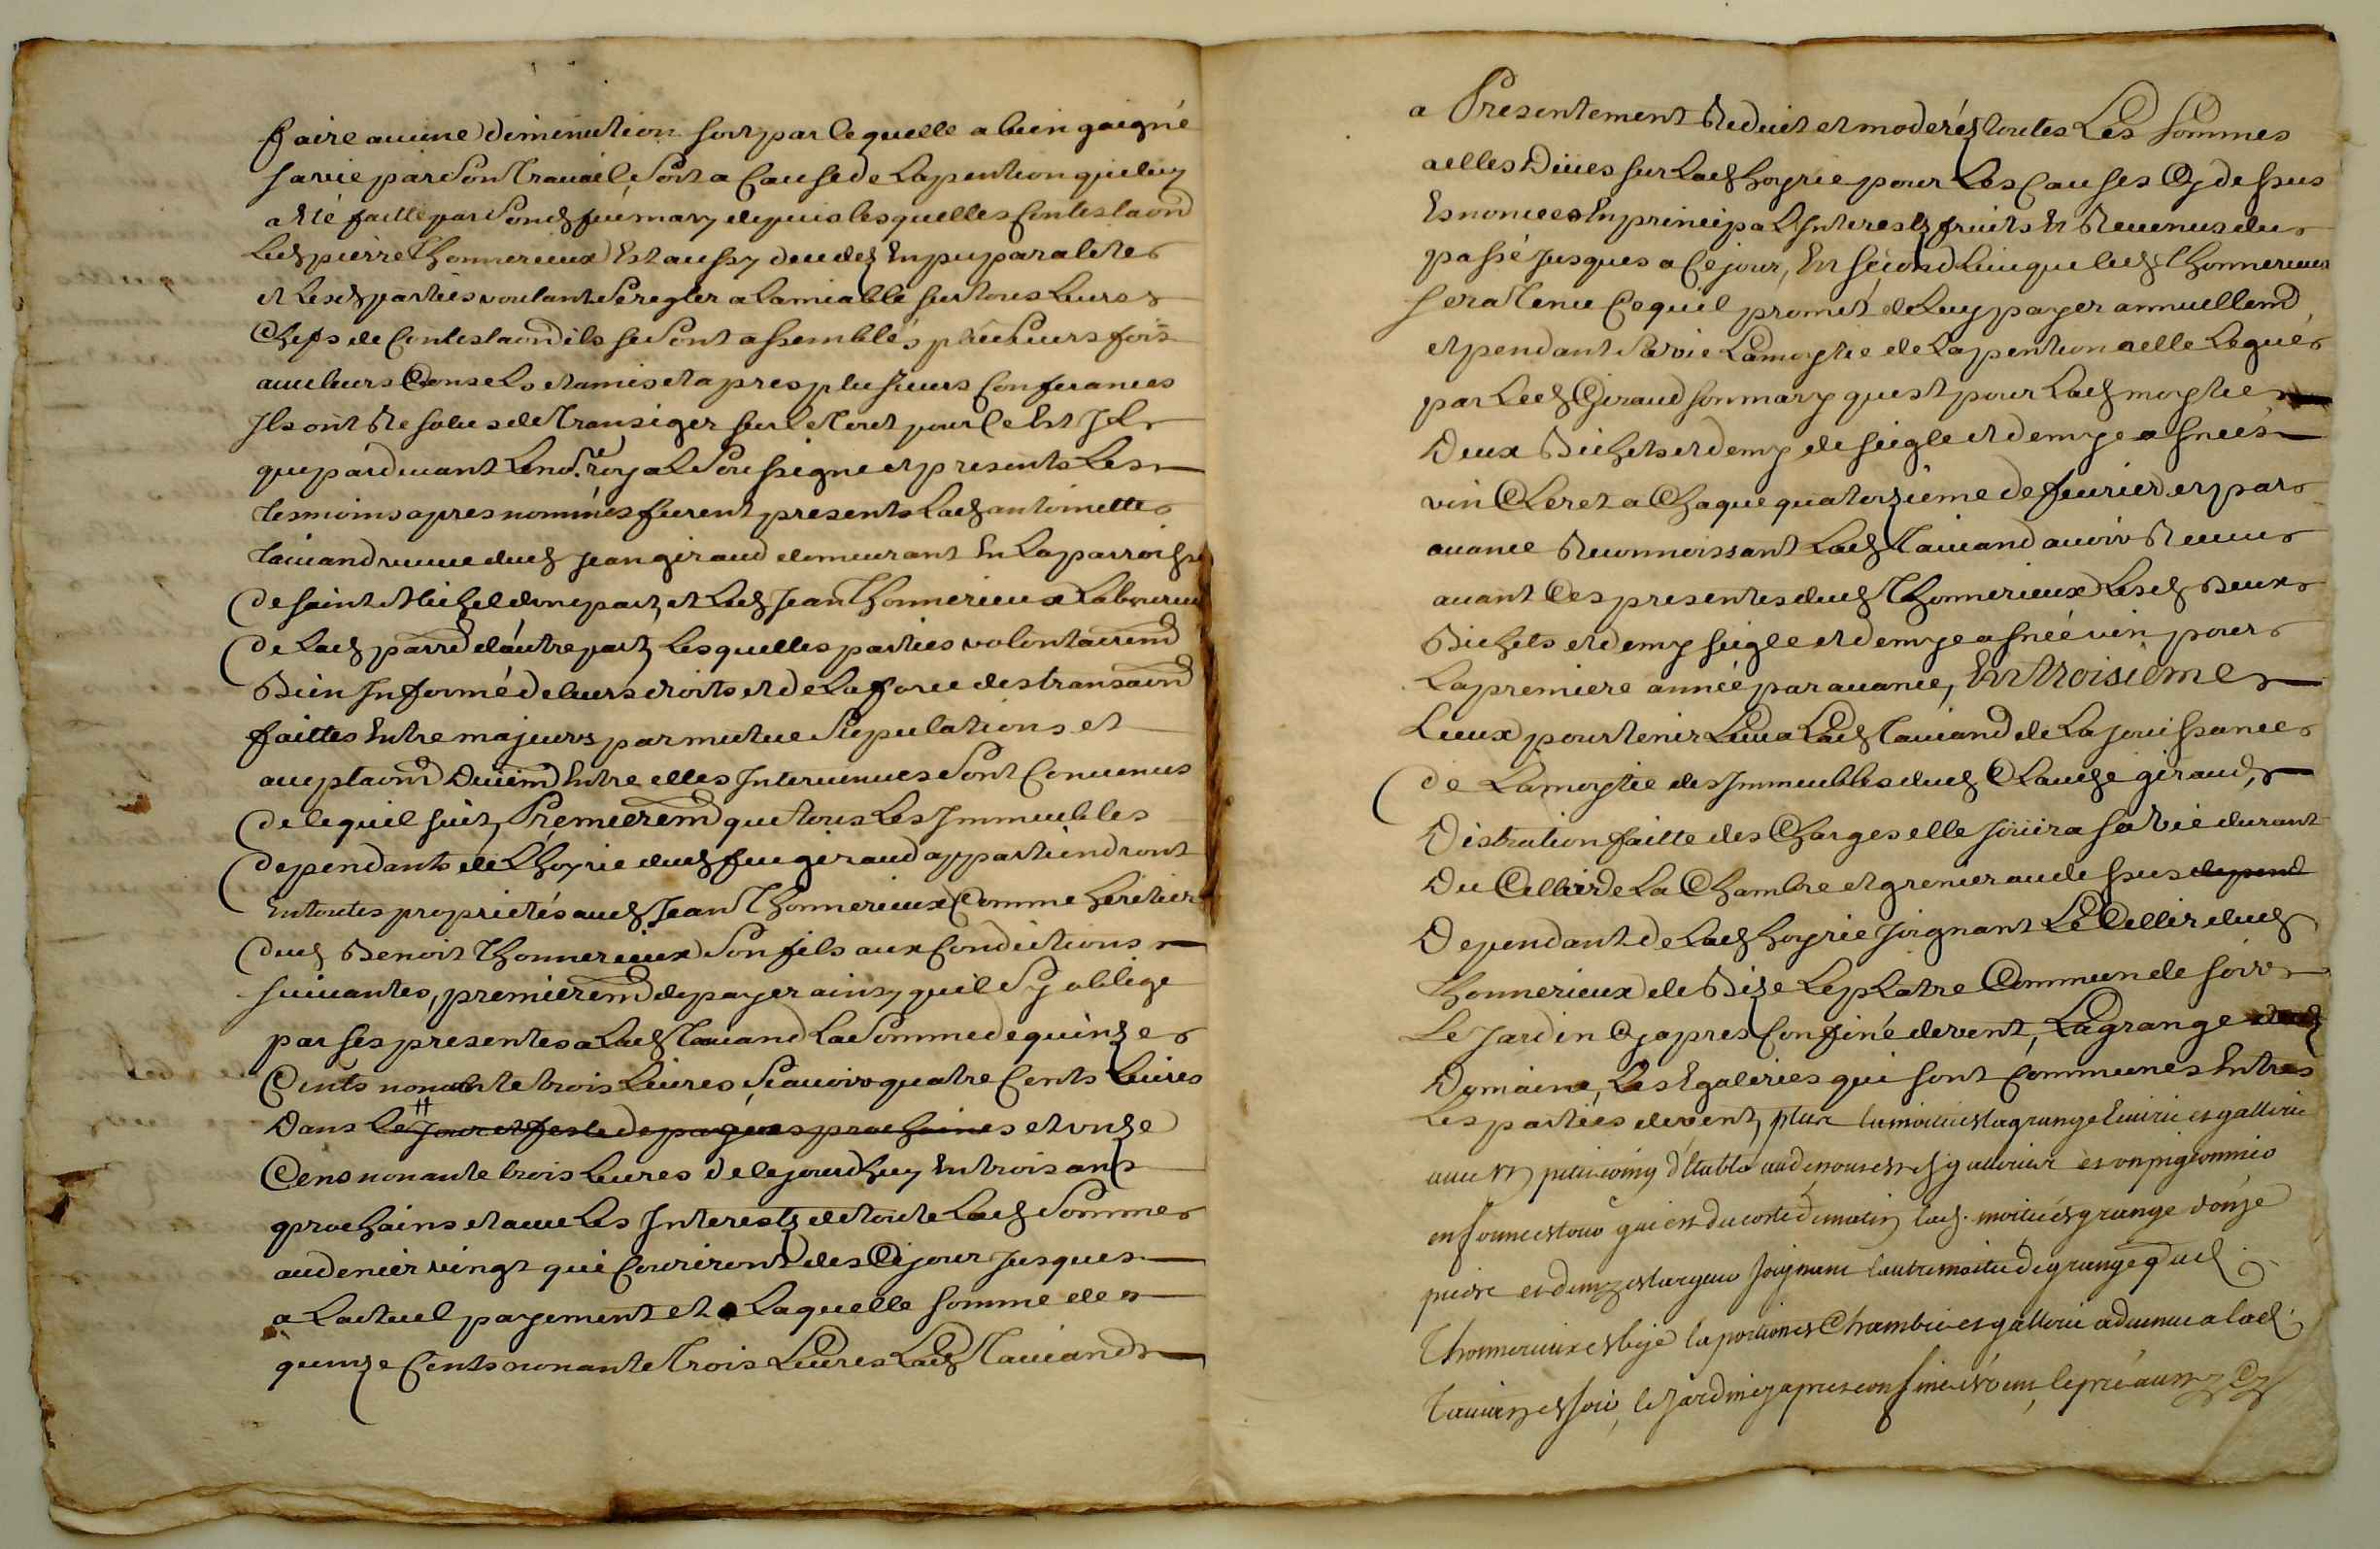 faire aucune diminution soit par ce quelle a bien gaigné
sa vie par son travail, soit a cause de la pention qui luy
a eté faitte par sond feu mary depuis lesquelles contestaond
led pierre Thonnerieux est aussy decedé en pupararité
et lesd parties voulant se regler a lamiable sur tous leurs
chefs de contestaond ils se sont assemblés plusieurs fois
avec leurs conseils et amis et apres plusieurs conferances
Ils ont resolus de transiger sur le tout pour ce est Il
que pardevant le no.re royal soussigné et presents les
tesmoins apres nommés furent presents lad antoinette
Taviand veuve dud jean giraud demeurant en la parroisse
de saint Michel dune part, et led Jean Thonnerieux laboureur
de lad parr d'autre part, lesquelles parties volontairemd
Bien Informé de leurs droits et de la force des transaond
faittes entre majeurs par mutue stipulations et
acceptaond deuemd entre elles Intervenues sont convenus
de ce quil suit, Premieremd que tous les Immeubles
dependants de lhoyrie dud feu giraud appartiendront
en toutes proprietés aud Jean Thonnerieux comme heritier
dud Benoit Thonnerieux son fils aux conditions
suivantes, premieremd de payer ainsy quil sy oblige
par ses presentes a lad Taviand la somme de quinze
Cents nonante trois livres, scavoir quatre cents livres
Dans le jour et feste de paques prochaines et onze
Cens nonante trois livres de ce jourdhuy en trois ans
prochains et avec les Interests de toute lad somme
au denier vingt qui couriront des ce jour jusques
a lactuel payement et laquelle somme de
quinze cents nonante trois livres lad Taviand
a Presentement Reduit et moderé toutes les sommes
a elles Dües sur lad hoyrie pour les causes cy dessus
Enoncees en principal Interests fruits et Revenus du
passé jusques a ce jour, En second lieu que led Thonnerieux
sera tenu ce quil promet de luy payer annuellemd
et pendant sa vie la moytie de la pention a elle legué
par led Giraud son mary quest pour lad moytie
Deux Bichets et demy de seigle et demye asnées
vin cleret a chaque quatorzième de fevrier et par
avance Reconnoissant lad Taviand avoir Receu
avant ces presentes dud Thonnerieux lesd deux
Bichets et demy seigle et demye asnée vin pour
la premiere année par avance, En troisieme
Lieux pour tenir lieu a lad Taviand de la jouissance
de la moytie des Immeubles dud Claude giraud,
Distration faitte des charges elle jouira sa vie durant
Du Cellier de la chambre et grenier au de ssus depend
Dependant de lad hoyrie joignant le Cellier dud
Thonnerieux de Bize le platre commun de soir
Le Jardin cy apres confiné devent, la grange dud
Domaine, les Egaleries qui sont communes entre
les parties devent, plus la moitié de la grange et gallerie
avec un petit coing d'etable au denous et un pigeonnier
en qui est du costé de matin lad. moitié grange d'onze
pieds et demy de largeur joignant l'autre moitié de grange dud
Thonnerieux de bize la portion de chambre et gallerie advenue a lad
Taviand de soir, le jardin cy apres confiné de vent, le pré aussy cy